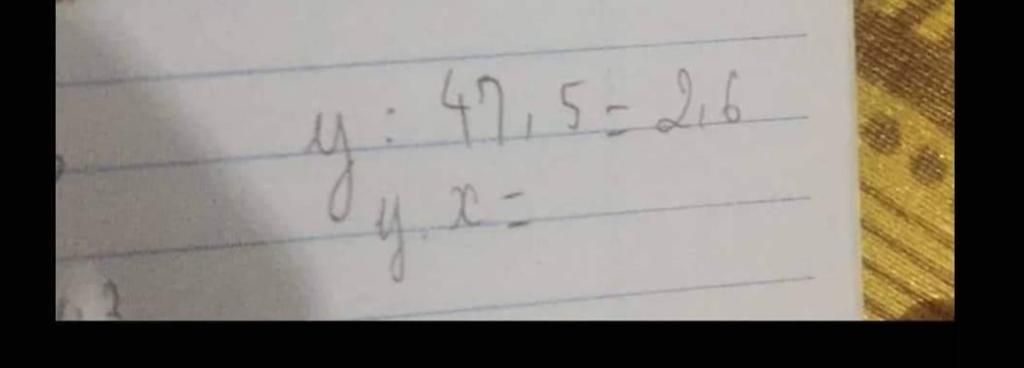 y : 47,5 = 2,6
y. x =